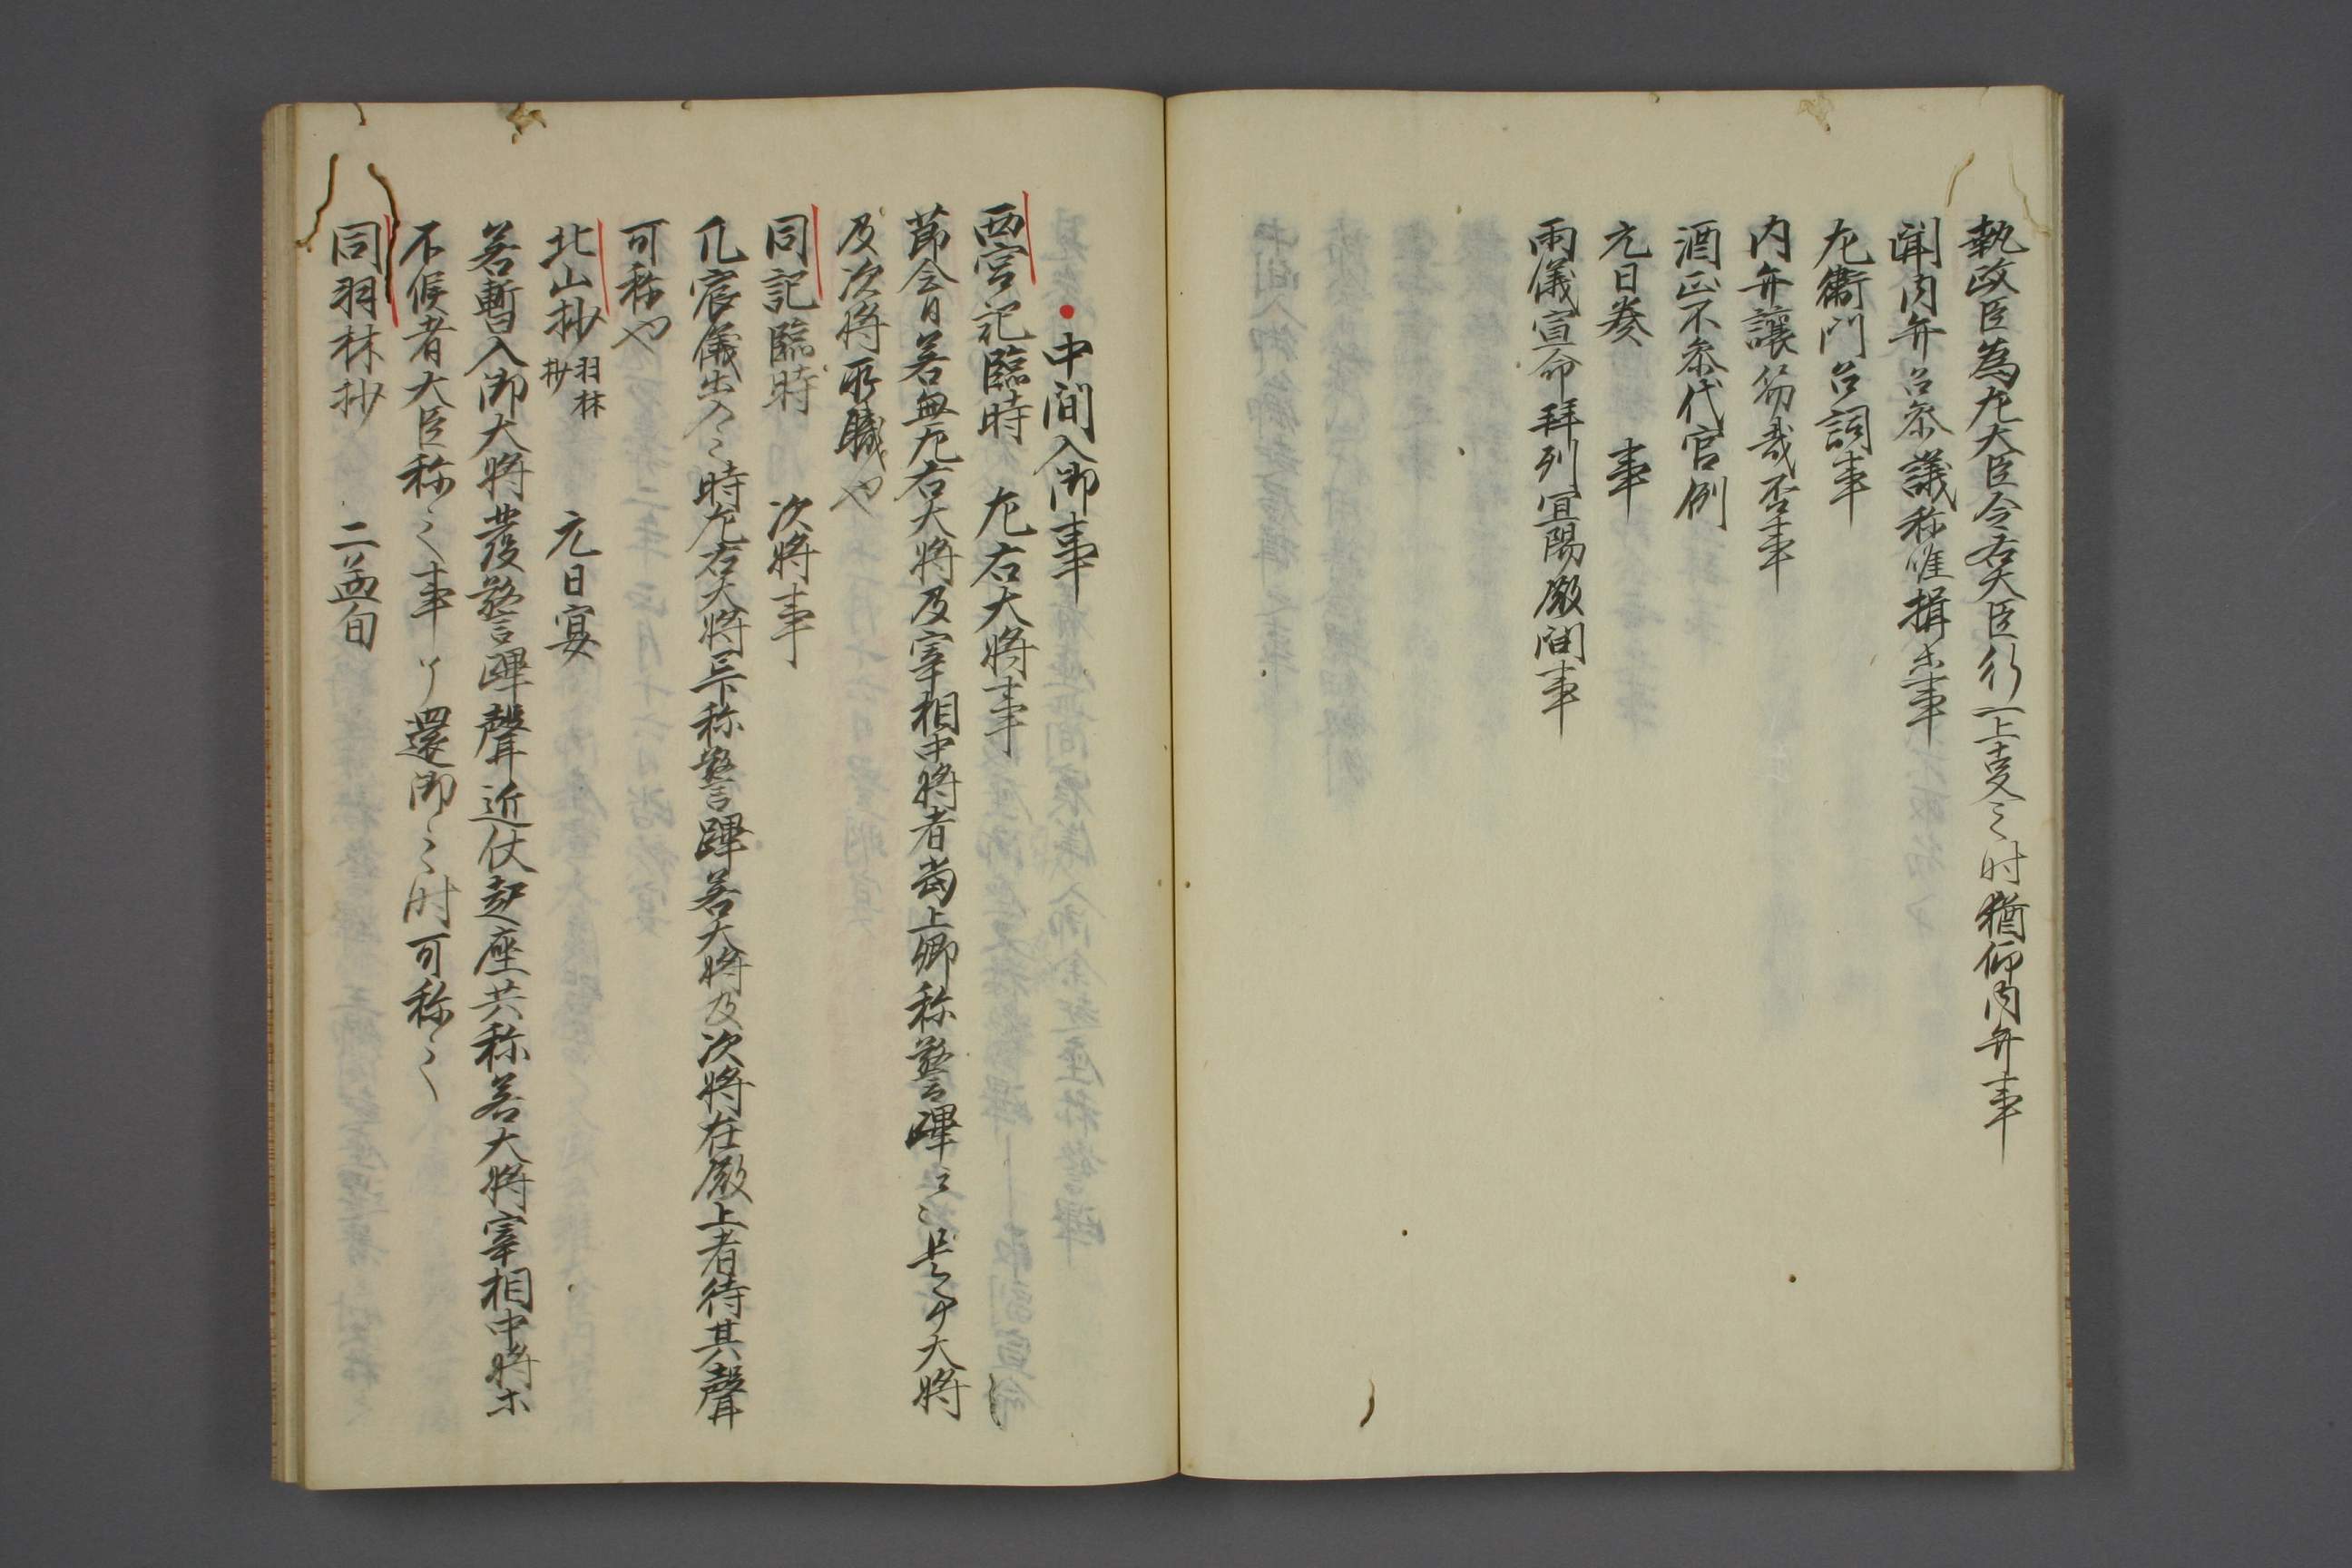 執政臣為左大臣令右大臣行一上事之時猶仰内弁事
聞内弁召参議称唯揖出事
左衛門召詞事
内弁譲笏哉否事
酒正不参代官例
元日奏　事
雨儀宣命拝列宜陽殿間事
中間入御事
西宮記臨時　左右大将事
節会日若無左右大将及宰相中将者当上卿称警蹕々々是
大将
及次将所職也
同記臨時　次将事
凡宸儀出入之時左右大将上下称警蹕若大将及次将在殿上者待其聲
可称也
北山抄羽林抄　元日宴
若暫入御大将發警蹕聲近仗起座共称若大将宰相中将ホ
不候者大臣称之事了還御之時可称之
同羽林抄　二孟旬